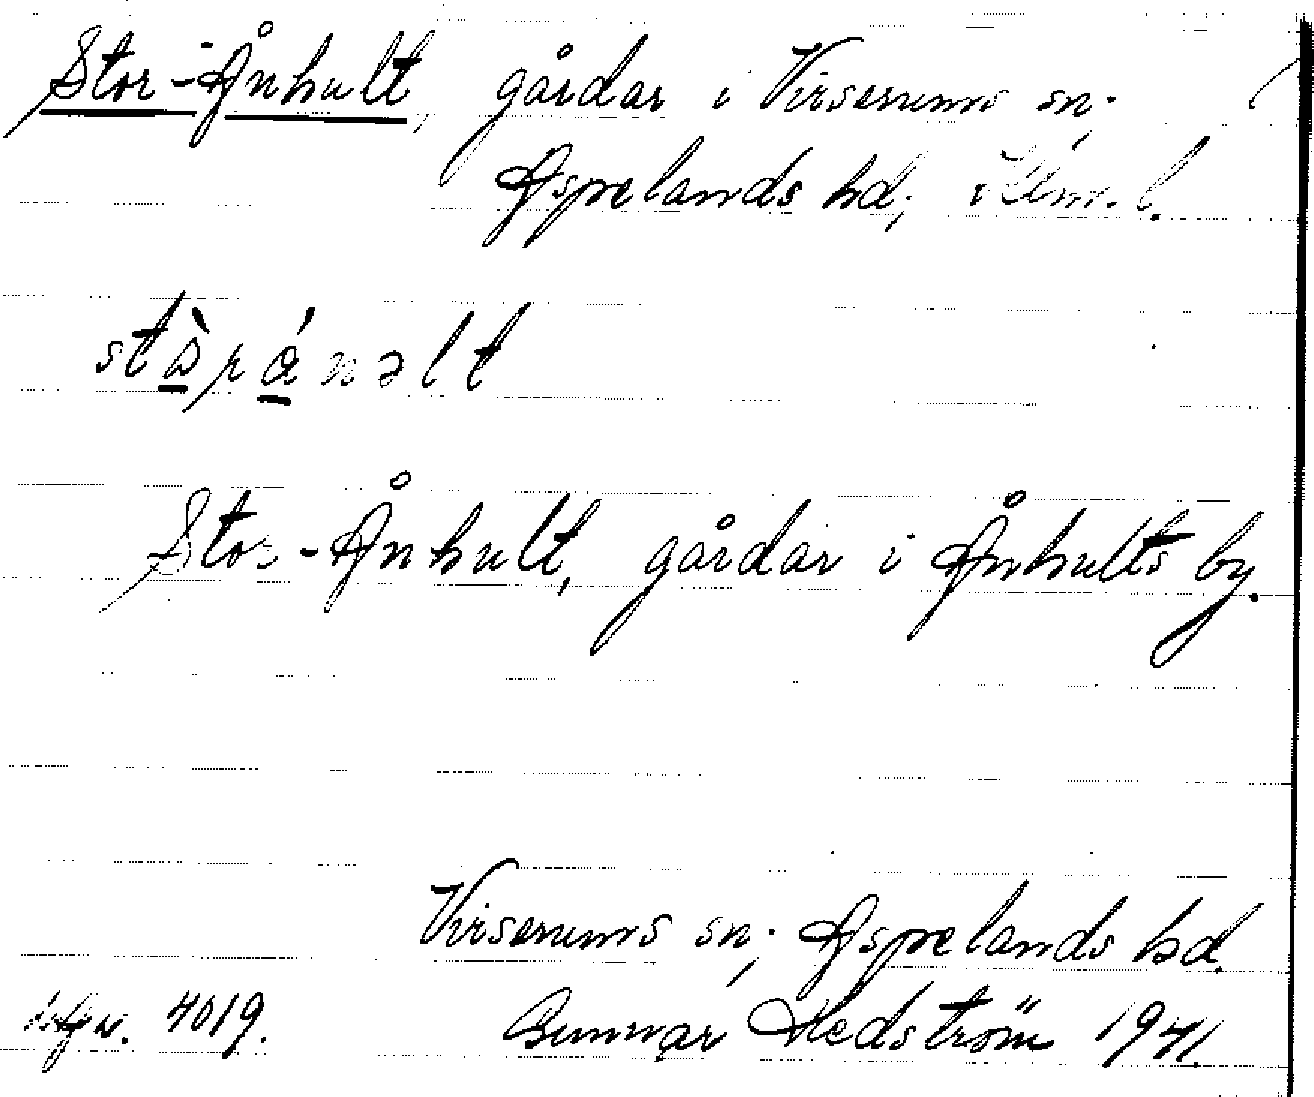 Stor-Ånhult, gårdar i Virserums sn;
Aspelands hd; Klm. l.
stàránəlt
Stor-Ånhult, gårdar i Ånhults by.
Virserums sn; Aspelands hd.
4019. Gunnar Hedström 1941.